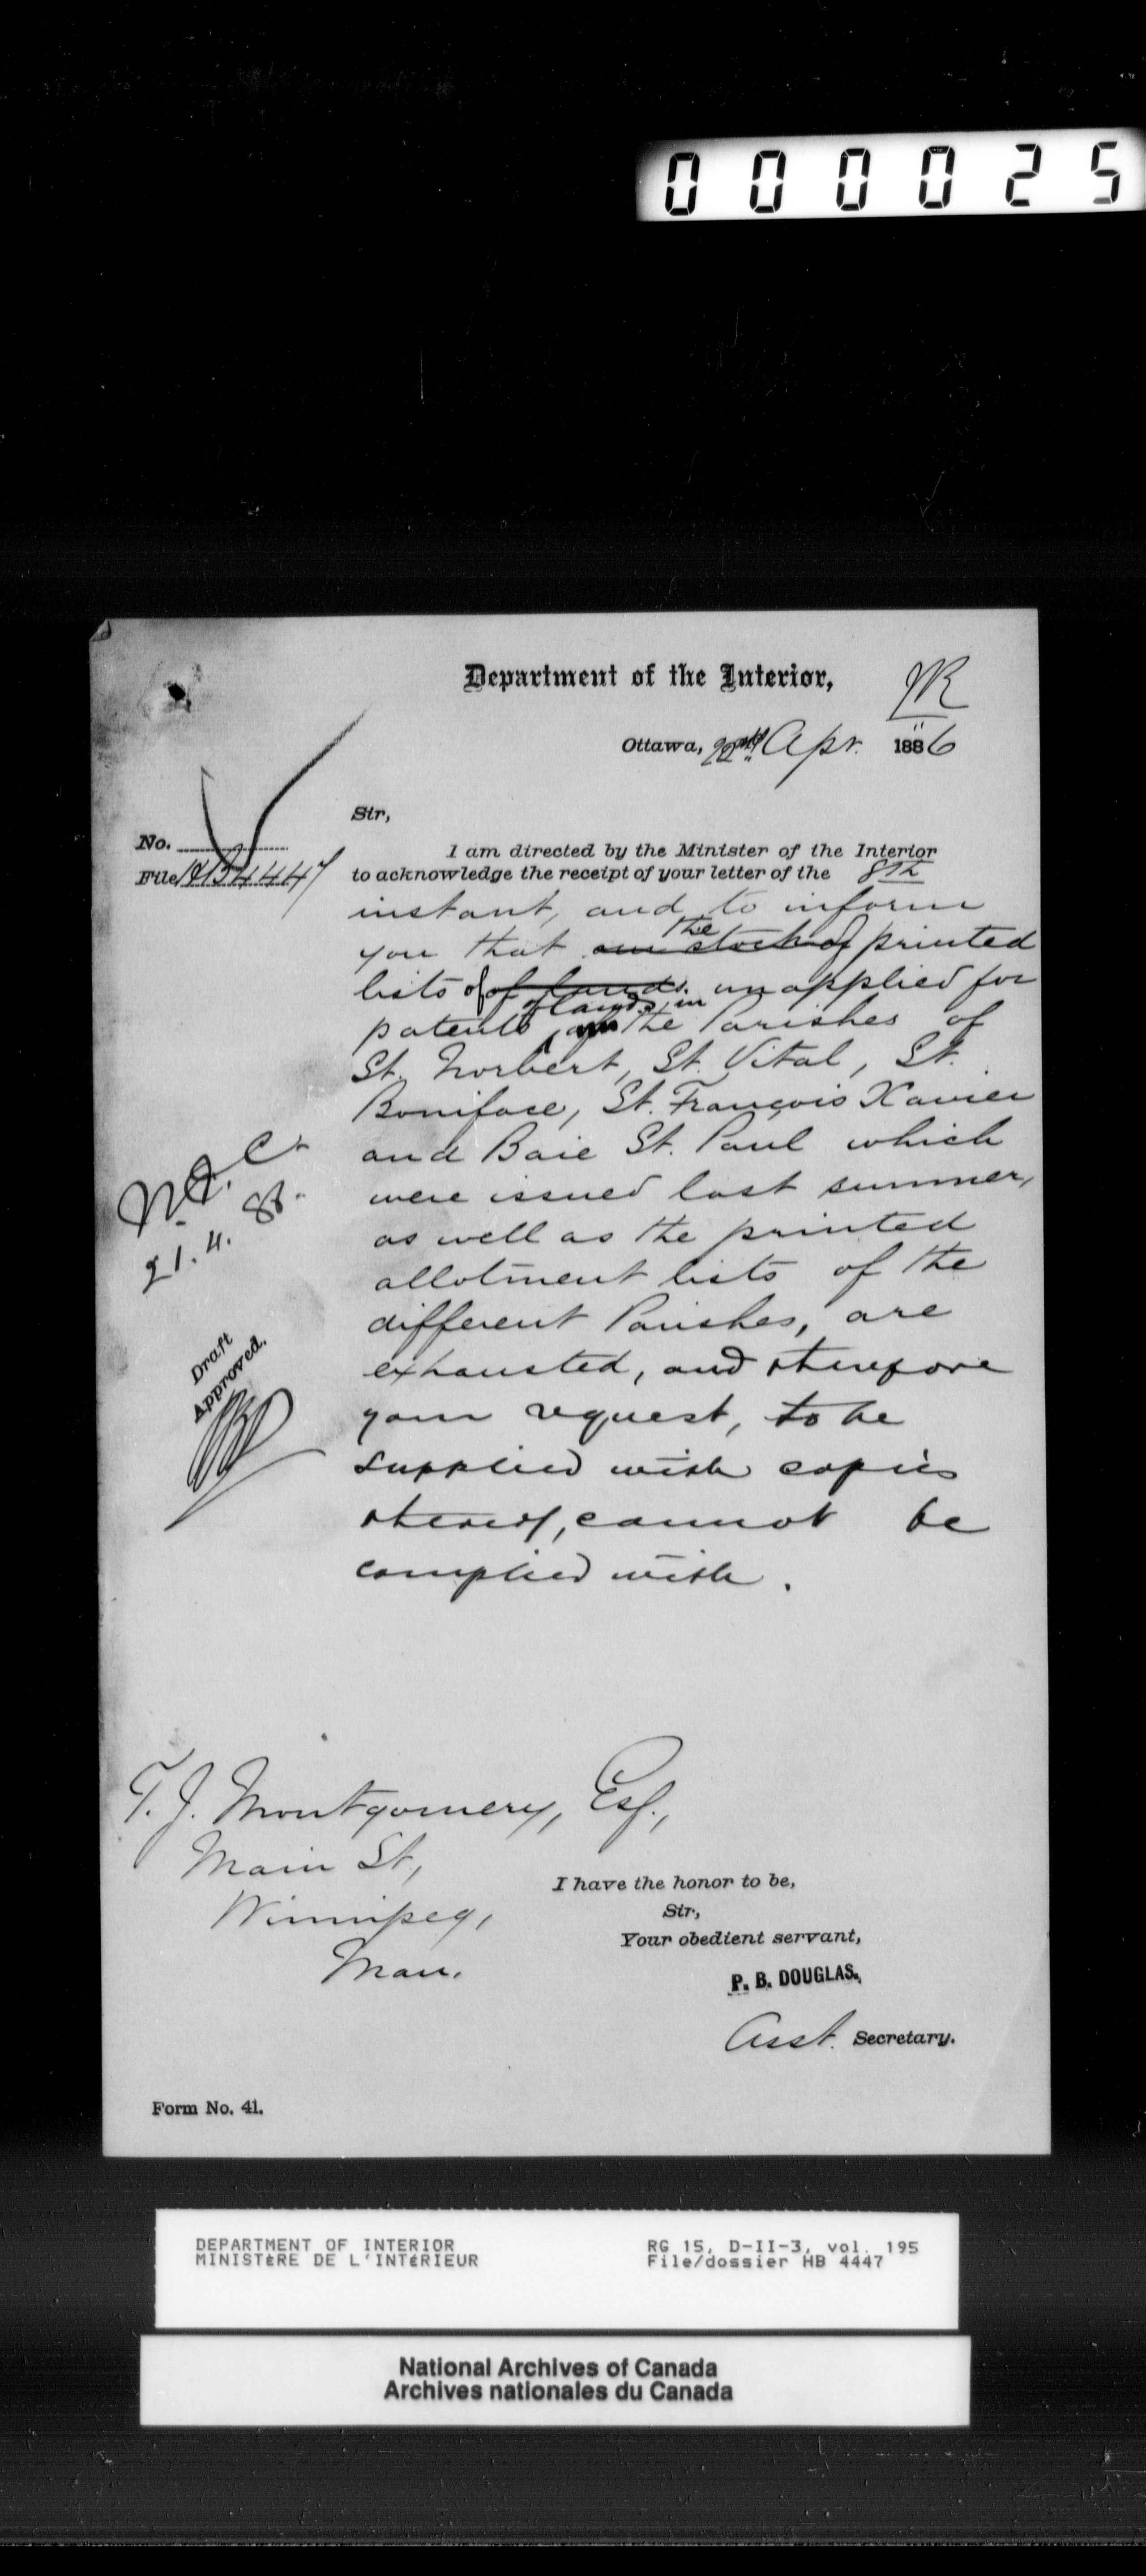 000025
Department of the Interior,
JR
Ottawa, 22nd Apr. 1886
Sir,
No.
File HB 4447
I am directed by the Minister of the Interior
to acknowledge the receipt of your letter of the 8th
instant, and to inform
the
you that our stock of printed
lists of of lands unapplied for
of lands, in
patents the Parishes of
St. Norbert, St. Vital, St.
Boniface, St. François Xavier
and Baie St. Paul which
were issued last summer,
as well as the printed
allotment lists of the
different Parishes, are
exhausted, and therefore
your request, to be
supplied with copies
thereof, cannot be
complied with.
21.4.86.
Draft
Approved.
T. J. Montgomery, Esq.,
Main St,
Winnipeg,
Man.
I have the honor to be,
Sir,
Your obedient servant,
P. B. DOUGLAS.,
Asst. Secretary.
Form No. 41.
DEPARTMENT OF INTERIOR
MINISTèRE DE L'INTéRIEUR
RG 15, D-II-3, vol. 195
File/dossier HB 4447
National Archives of Canada
Archives nationales du Canada